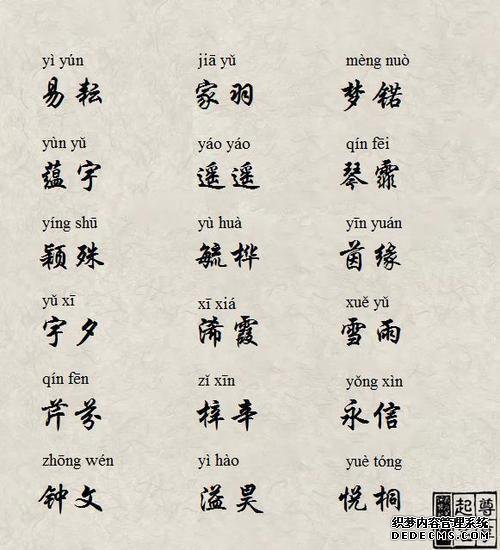 yì yún jiā yǔ mèng nuò
易耘 家羽 梦锘
yùn yǔ yáo yáo qín fēi
蕴宇 遥遥 琴霏
yíng shū yù huà yīn yuán
颖殊 毓桦 茵缘
yǔ xī xī xiá xuě yǔ
宇夕 浠霞 雪雨
qín fēn zǐ xīn yǒng xìn
芹芬 梓辛 永信
zhōng wén yì hào yuè tóng
钟文 溢昊 悦桐
尊
起
织梦内容管理系统
DEDECMS.COM